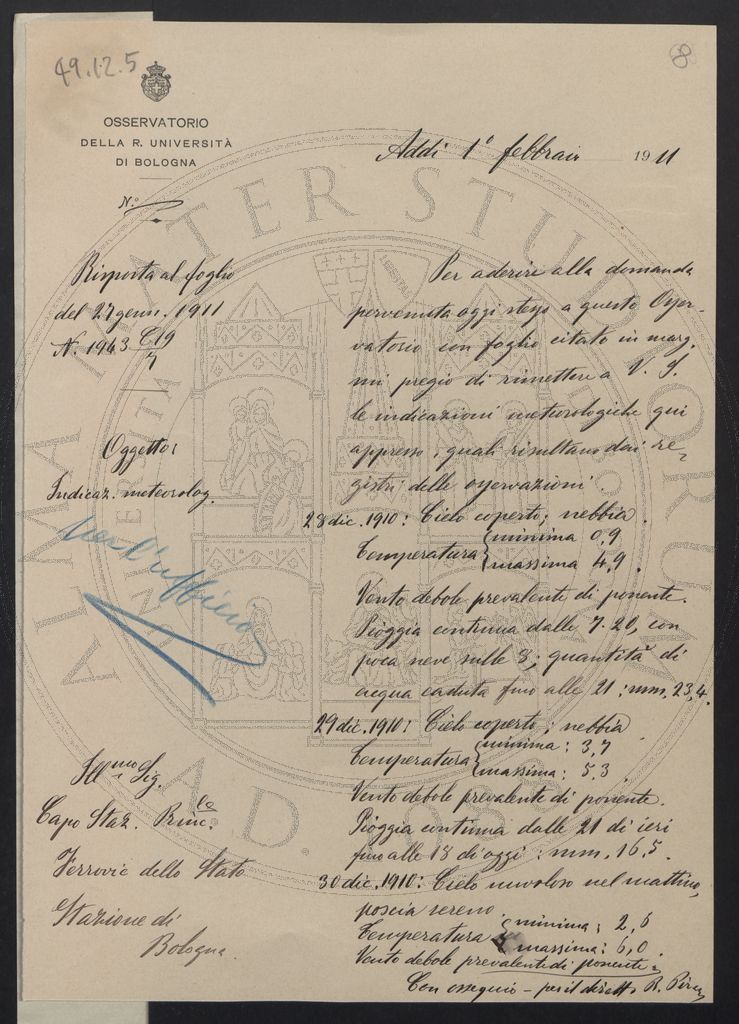 49.12.5
8
OSSERVATORIO
DELLA R. UNIVERSITÀ
DI BOLOGNA
N.º
Addì 1º febbraio 1911
Risposta al foglio
del 27 genn. 1911
N. 1943 C19/7
Oggetto:
Indicaz. meteorolog.
Per aderire alla domanda
pervenuta oggi stesso a questo Osser-
vatorio con foglio citato in marg.
mi pregio di rimettere a V. S.
le indicazioni meteorologiche qui
appresso, quali risultano dai re-
gistri delle osservazioni.
28 dic. 1910: Cielo coperto; nebbia.
Temperatura { minima 0,9
massima 4,9.
Vento debole prevalente di ponente.
Pioggia continua dalle 7.20, con
poca neve sulle 8; quantità di
acqua caduta fino alle 21: mm. 23,4.
29 dic. 1910: Cielo coperto; nebbia
Temperatura { minima: 3,7
massima: 5,3
Vento debole prevalente di ponente.
Pioggia continua dalle 21 di ieri
fino alle 18 di oggi: mm. 16,5.
30 dic. 1910: Cielo nuvoloso nel mattino,
poscia sereno.
Temperatura { minima: 2,6
massima: 6,0.
Vento debole prevalente di ponente.
Con ossequio – per il dirett. R.
per l'ufficio
Ill.mo Sig.
Capo Staz. Princ.le
Ferrovie dello Stato
Stazione di
Bologna.
ALMA MATER STUDIORUM
A.D. 1088